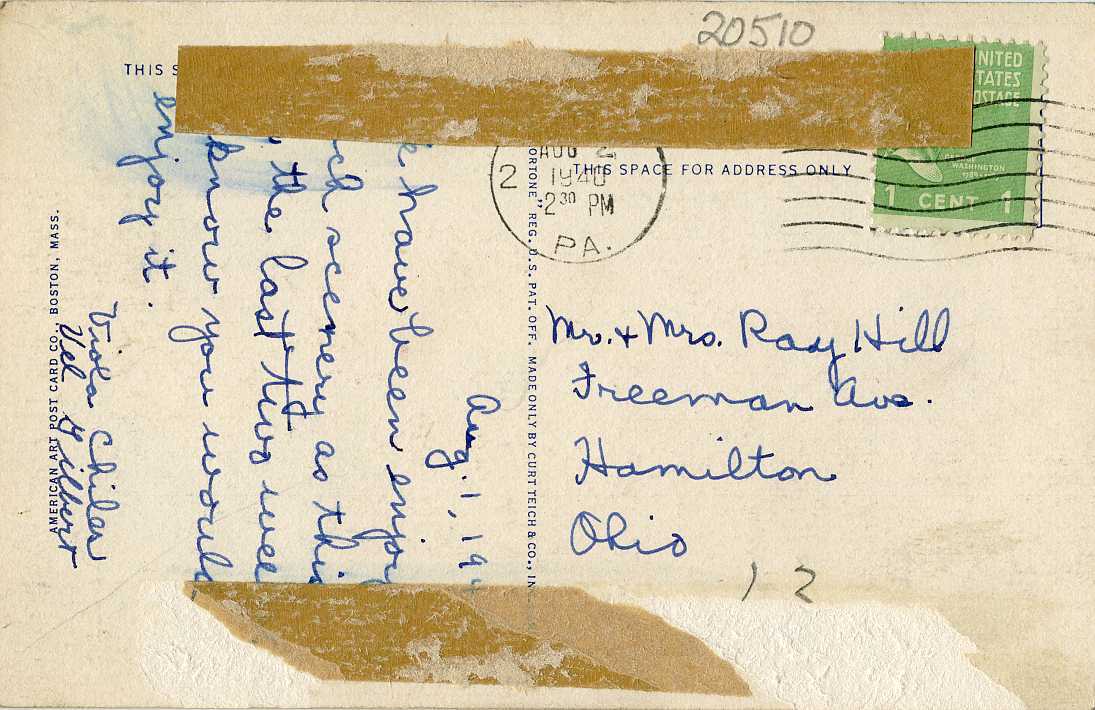 20510
THIS S
THIS SPACE FOR ADDRESS ONLY
NITED
TATES
OSTAGE
WASHINGTON
1 CENT 1
AUG 2
2 1940
2 30 PM
PA.
Aug. 1, 19
have been enjoy
ch scenery as this
the last two wee
know you would
enjoy it.
Viola Chiles
Vel Gilbert
AMERICAN ART POST CARD CO., BOSTON, MASS.
ORTONE," REG. U.S. PAT. OFF. MADE ONLY BY CURT TEICH & CO., IN
Mr. + Mrs. Ray Hill
Freeman Ave.
Hamilton
Ohio
12